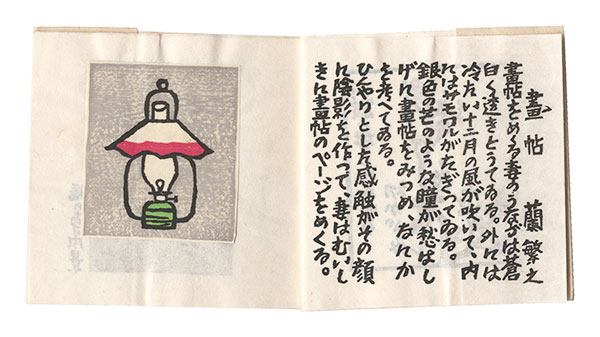 畫帖　蘭繁之
畫帖をめくる妻のうなじは蒼
白く透きとうてゐる。外には
冷たい十二月の風が吹いて、内
にはサモワルがたぎってゐる。
銀色の芒のような瞳が愁はし
げに畫帖をみつめ、なんか
を考へてゐる。
ひんやりとした感触がその顔
に陰影を作って、妻はむいし
きに畫帖のページをめくる。